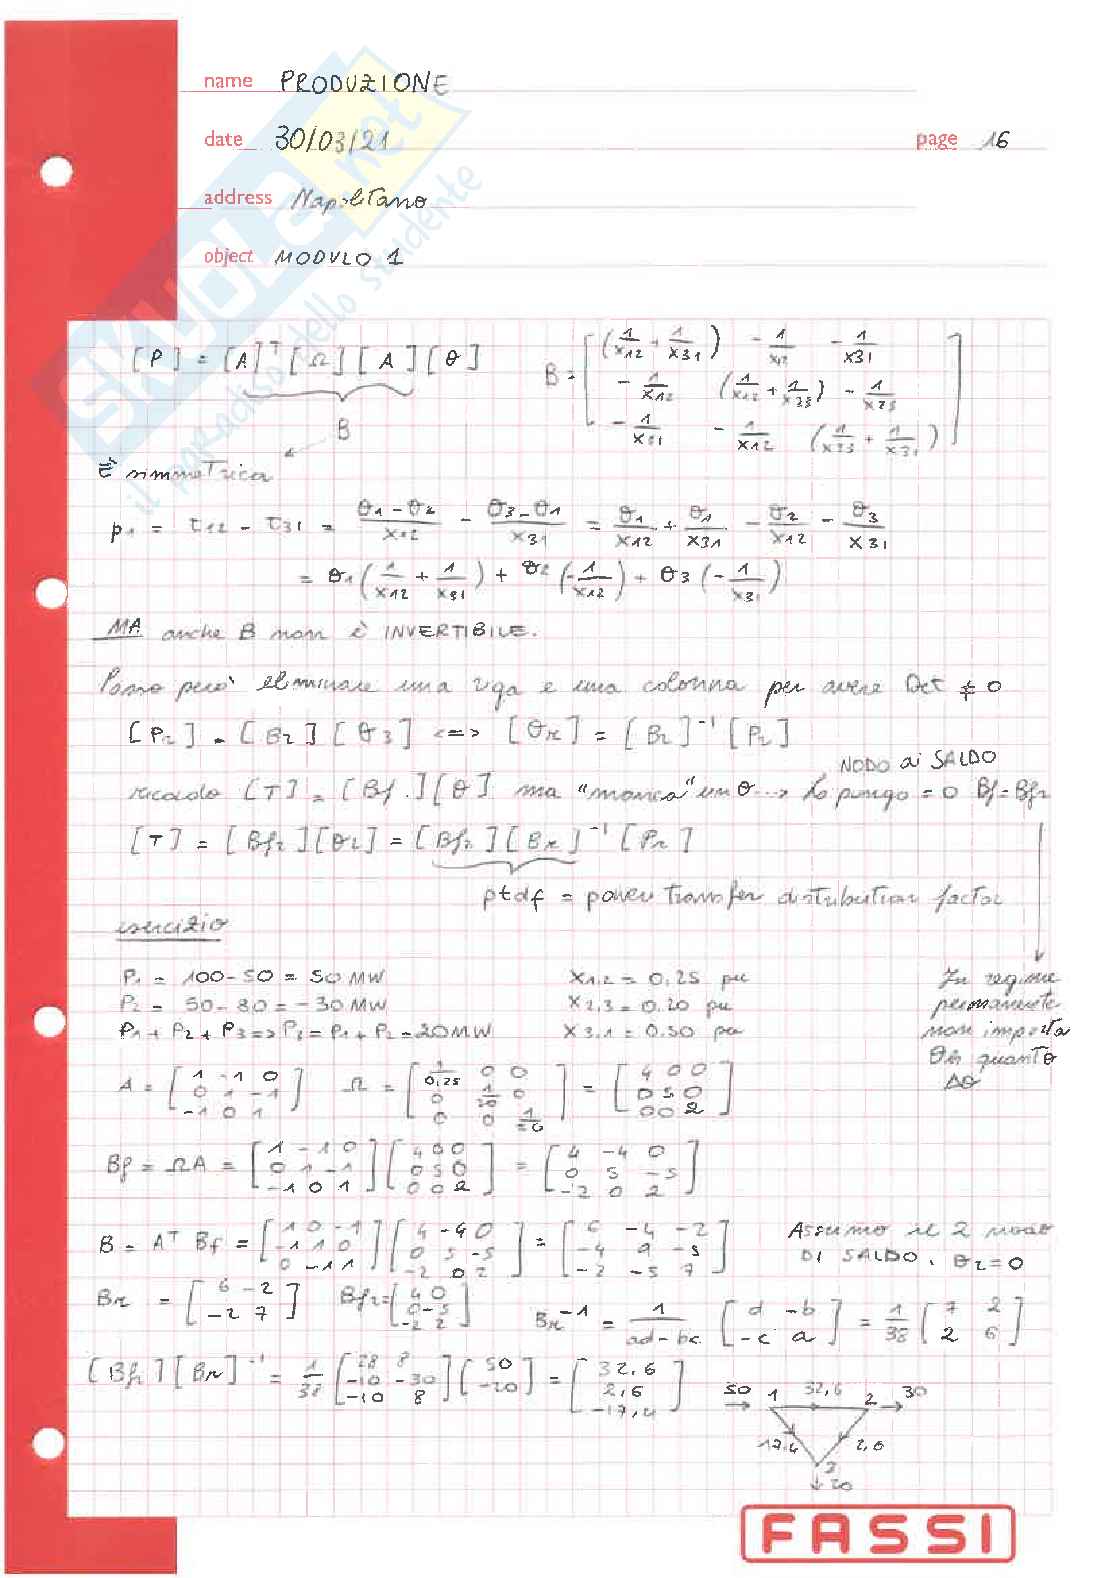 name PRODUZIONE
date 30/03/21 page 16
address Napolitano
object MODULO 1
SKUOLA.net
il paradiso dello studente
[P] = [A]ᵀ [Ω] [A] [θ]
B
B = [(1/x12 + 1/x31) -1/x12 -1/x31
-1/x12 (1/x12 + 1/x23) -1/x23
-1/x31 -1/x12 (1/x23 + 1/x31)]
È simmetrica
p1 = t12 - t31 = (θ1-θ2)/x12 - (θ3-θ1)/x31 = θ1/x12 + θ1/x31 - θ2/x12 - θ3/x31
= θ1 (1/x12 + 1/x31) + θ2 (-1/x12) + θ3 (-1/x31)
MA anche B non è INVERTIBILE.
Posso però eliminare una riga e una colonna per avere Det ≠ 0
[Pr] = [Br] [θr] <=> [θr] = [Br]⁻¹ [Pr]
NODO di SALDO
ricordo [T] = [Bf] [θ] ma "manca" un θ --> Lo pongo = 0 Bf = Bfr
[T] = [Bfr] [θr] = [Bfr] [Br]⁻¹ [Pr]
ptdf = power transfer distribution factor
esercizio
P1 = 100-50 = 50 MW x1,2 = 0,25 pu
P2 = 50-80 = -30 MW x2,3 = 0,20 pu
P1 + P2 + P3 => P3 = P1 + P2 = 20 MW x3,1 = 0.50 pu
In regime
permanente
non importa
θ in quanto
Δθ
A = [1 -1 0
0 1 -1
-1 0 1] Ω = [1/0,25 0 0
0 1/20 0
0 0 1/50] = [4 0 0
0 5 0
0 0 2]
Bf = ΩA = [1 -1 0
0 1 -1
-1 0 1] [4 0 0
0 5 0
0 0 2] = [4 -4 0
0 5 -5
-2 0 2]
B = Aᵀ Bf = [1 0 -1
-1 1 0
0 -1 1] [4 -4 0
0 5 -5
-2 0 2] = [6 -4 -2
-4 9 -5
-2 -5 7]
Assumo il 2 nodo
DI SALDO. θ2=0
Br = [6 -2
-2 7] Bfr = [4 0
0 -5
-2 2] Br⁻¹ = 1/(ad-bc) [d -b
-c a] = 1/38 [7 2
2 6]
[Bfr] [Br]⁻¹ = 1/38 [28 8
-10 -30
-10 8] [50
-20] = [32,6
2,6
-17,4]
50 1 32,6 2 30
17,4 2,6
3
20
FASSI